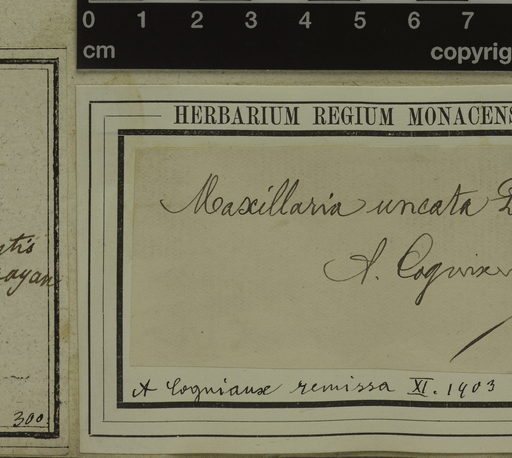 0 1 2 3 4 5 6 7
cm copyrig
HERBARIUM REGIUM MONACENS
Maxillaria uncata
A. Cogniaux
A Cogniaux remissa XI. 1903
300.